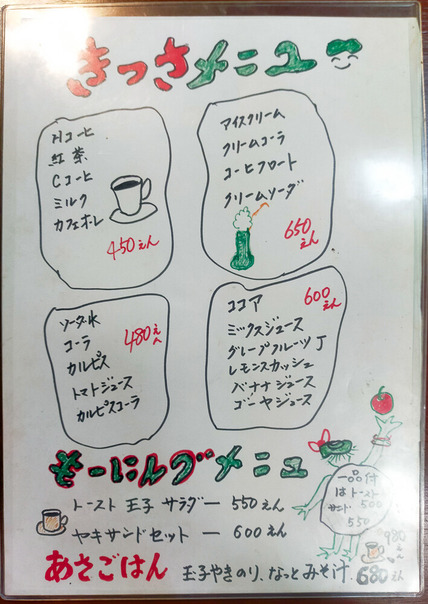 きっさメニュー
Hコーヒ
紅茶
Cコーヒ
ミルク
カフェオレ
450えん
アイスクリーム
クリームコーラ
コーヒフロート
クリームソーダ
650えん
ソーダ水
コーラ
カルピス
トマトジュース
カルピスコーラ
480えん
ココア
ミックスジュース
グレープフルーツJ
レモンスカッシュ
バナナジュース
ゴーヤジュース
600えん
もーにんぐメニュー
トースト 玉子 サラダー 550えん
ヤキサンドセット ー 600えん
あさごはん 玉子やきのり、なっとみそ汁 680えん
一品付
はトースト
500
サンド
550
980えん